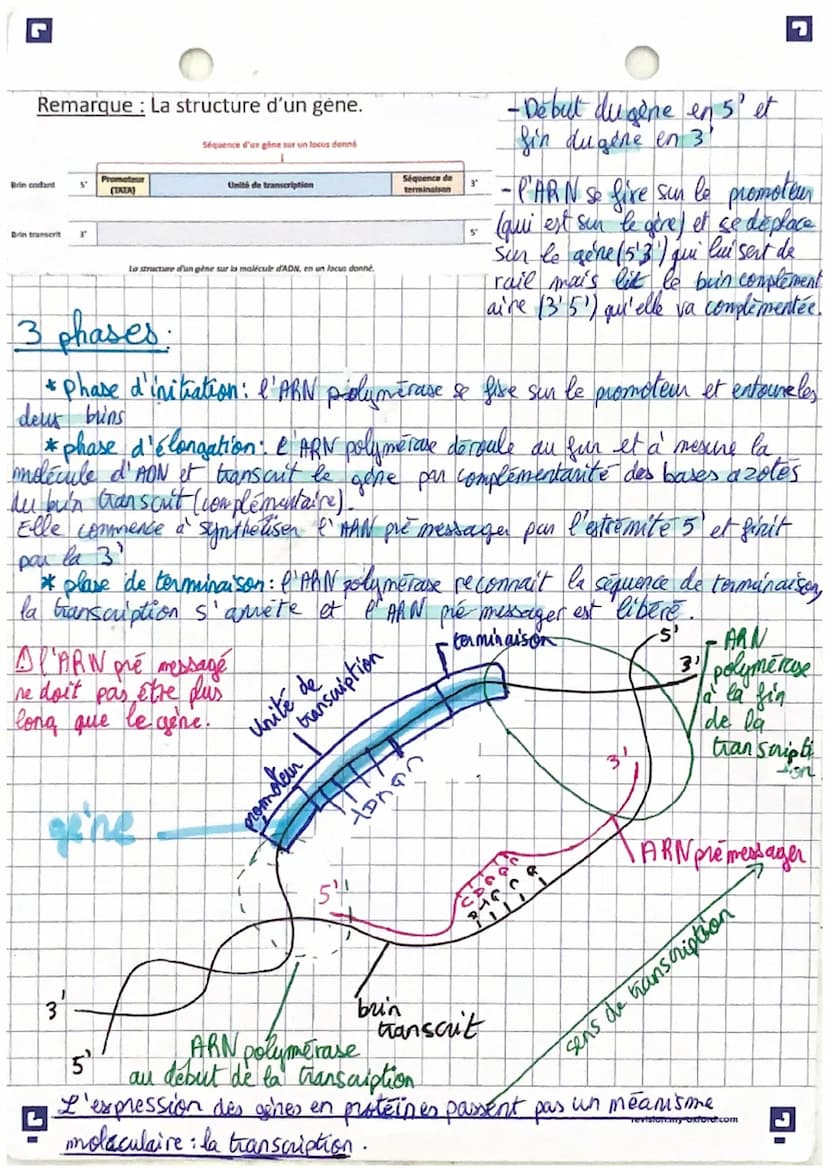 Remarque : La structure d'un gène.
Séquence d'un gène sur un locus donné
Brin codant 5' Promoteur (TATA) Unité de transcription Séquence de terminaison 3'
Brin transcrit 3' 5'
La structure d'un gène sur la molécule d'ADN, en un locus donné.
- Début du gène en 5' et
fin du gène en 3'
- l'ARN se fixe sur le promoteur
(qui est sur le gène) et se déplace
sur le gène (5'3') qui lui sert de
rail mais lit le brin complément
aire (3'5') qu'elle va complémentée.
3 phases :
* phase d'initiation : l'ARN polymérase se fixe sur le promoteur et entoure les
deux brins
* phase d'élongation : l'ARN polymérase déroule au fur et à mesure la
molécule d'ADN et transcrit le gène par complémentarité des bases azotés
du brin transcrit (complémentaire).
Elle commence à synthétiser l'ARN pré messager par l'extrémité 5' et finit
par la 3'
* phase de terminaison : l'ARN polymérase reconnait la séquence de terminaison,
la transcription s'arrête et l'ARN pré-messager est libéré.
⚠ l'ARN pré messagé
ne doit pas être plus
long que le gène.
terminaison
Unité de
transcription
promoteur
gène
5'
3'
- ARN
polymérase
à la fin
de la
transcripti
-on
3'
ARN pré messager
5'
brin
transcrit
sens de transcription
3'
5'
ARN polymérase
au début de la transcription
L'expression des gènes en protéines passent pas un méanisme
revision.my-oxford.com
moléculaire : la transcription.